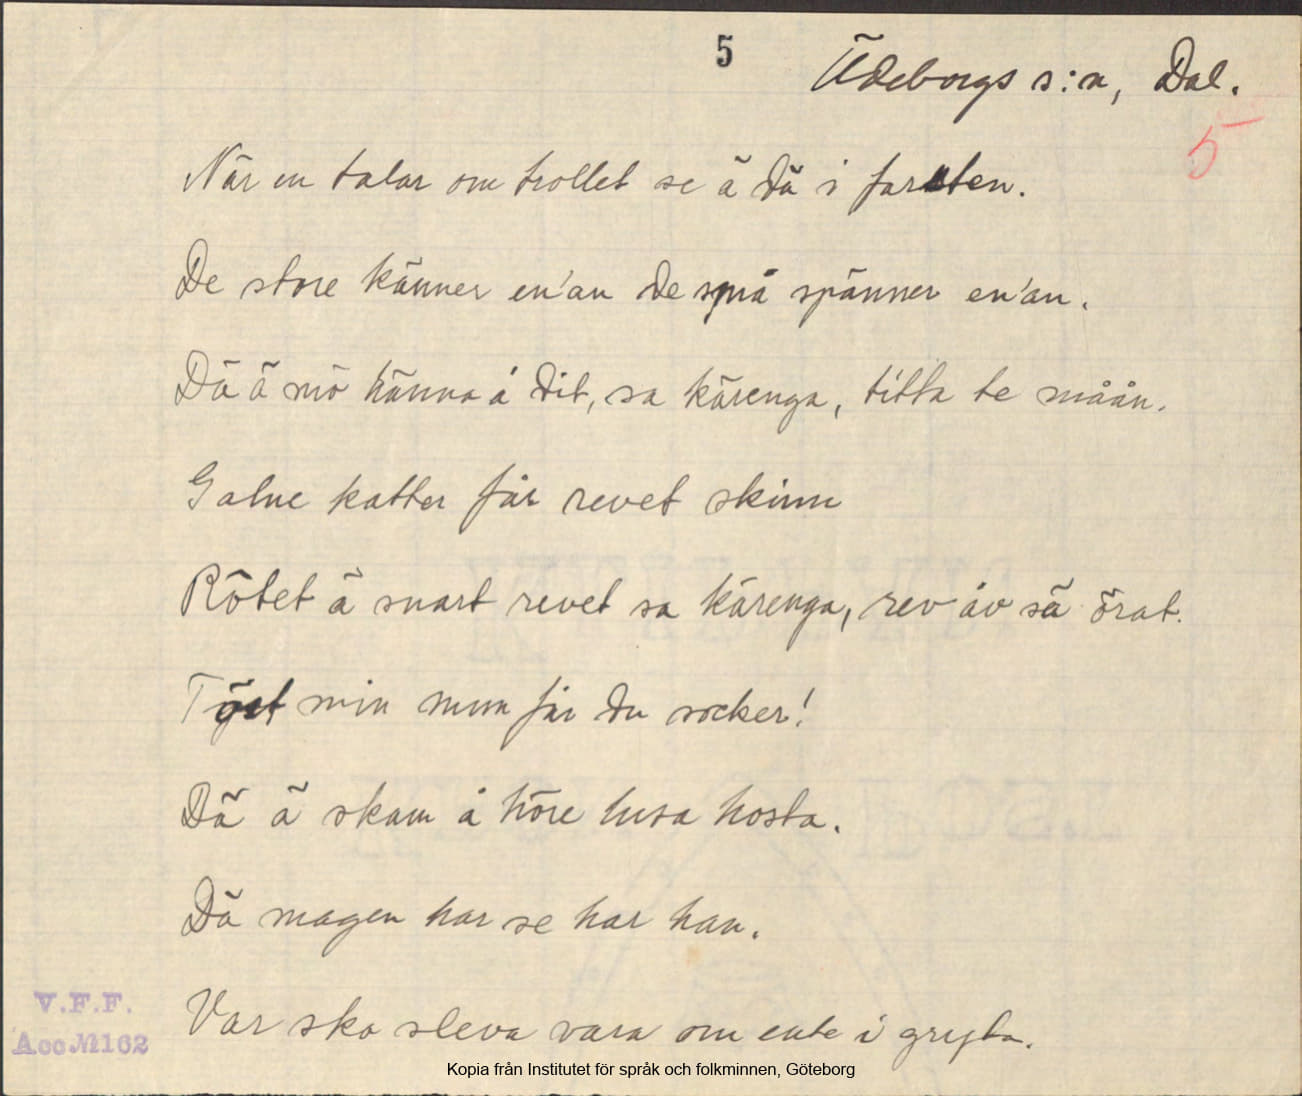 5
Ödeborgs s:n, Dal.
5
När en talar om trollet se ä dä i farsten.
De store känner en'an de små spänner en'an.
Dä ä mö känna å dit, sa kärenga, titta te måån.
Galne katter får revet skinn
Rötet ä snart revet sa kärenga, rev åv sä örat.
Töst min mun får du socker!
Dä ä skam å höre lusa hosta.
Dä magen har se har han.
Var ska sleva vara om ente i gryta.
V.F.F.
Acc № 162
Kopia från Institutet för språk och folkminnen, Göteborg